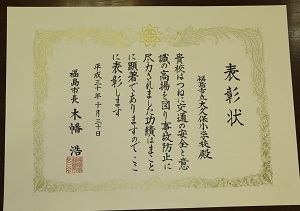 表彰状
福島市立大久保小学校殿
貴校はつねに交通の安全と意
識の高揚を図り事故防止に
尽力されました功績はまこと
に顕著でありますのでここ
に表彰します
平成三十年十月三十日
福島市長 木幡 浩